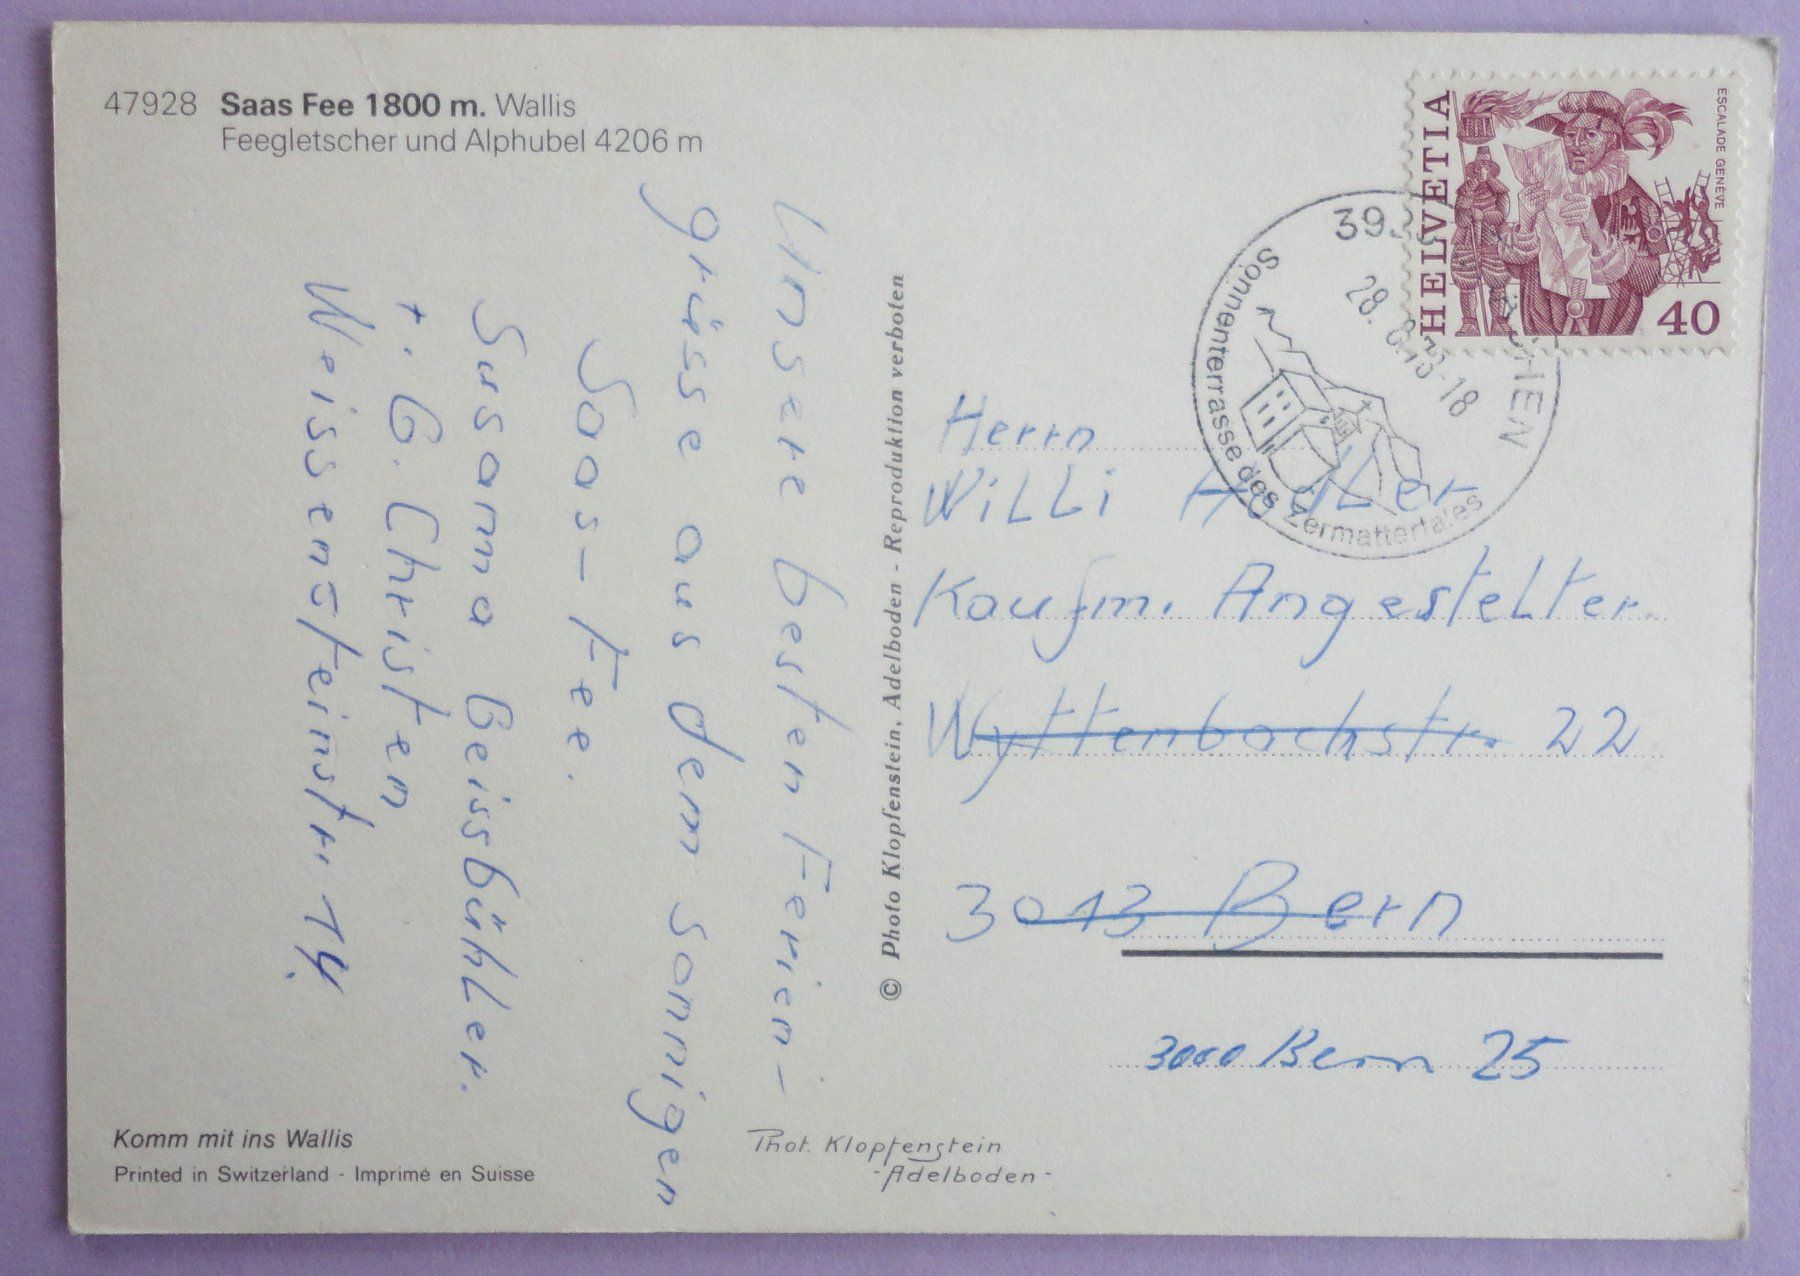 47928 Saas Fee 1800 m. Wallis
Feegletscher und Alphubel 4206 m
Unsere besten Ferien-
grüsse aus dem sonnigen
Saas-Fee.
Susanna Beissbühler.
+. G. Christen
Weissensteinstr. 14
Komm mit ins Wallis
Printed in Switzerland - Imprimé en Suisse
© Photo Klopfenstein, Adelboden - Reproduktion verboten
Phot. Klopfenstein
-Adelboden-
HELVETIA
ESCALADE GENÈVE
40
Sonnenterrasse des Zermattertales
Herrn
Willi
Kaufm. Angestellter.
Wyttenbachstr. 22
3013 Bern
3000 Bern 25